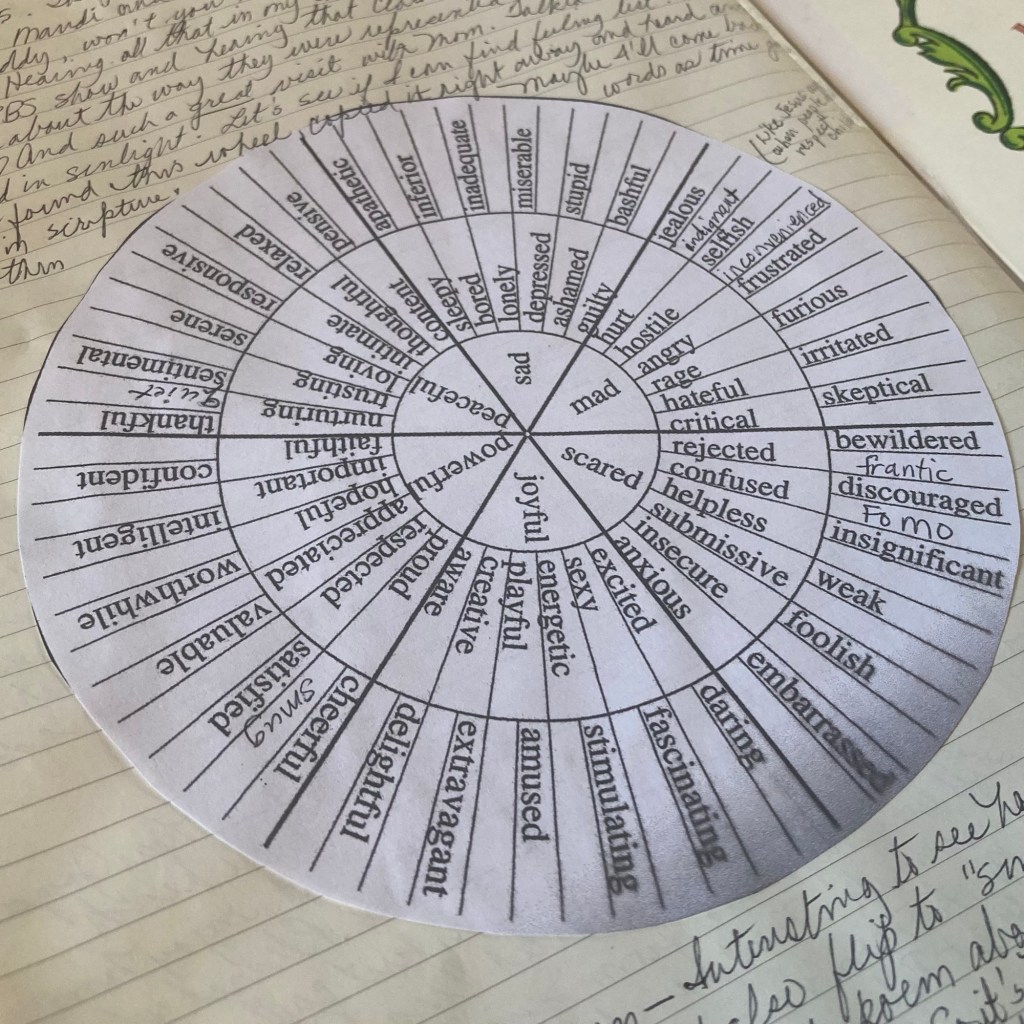 Mandi
ddy, won't you
Hearing all that in my
BS show and hearing that
about the way they were represented
And such a great visit with Mom. Talked
d in sunlight. Let's see if I can find feeling list
found this wheel copied it right away and
in scripture. maybe I'll come
words as time
thm
(Like Jesus
respect
sad
sleepy
bored
lonely
depressed
ashamed
guilty
apathetic
inferior
inadequate
miserable
stupid
bashful
mad
hurt
hostile
angry
rage
hateful
critical
jealous
indignant
selfish
inconvenienced
frustrated
furious
irritated
skeptical
scared
rejected
confused
helpless
submissive
insecure
anxious
bewildered
frantic
discouraged
FOMO
insignificant
weak
foolish
embarrassed
joyful
excited
sexy
energetic
playful
creative
aware
daring
fascinating
stimulating
amused
extravagant
delightful
powerful
proud
respected
appreciated
hopeful
important
faithful
cheerful
smug
satisfied
valuable
worthwhile
intelligent
confident
peaceful
nurturing
trusting
loving
intimate
thoughtful
content
thankful
quiet
sentimental
serene
responsive
relaxed
pensive
— Interesting to see he
also flip to "sn
poem abo
it's